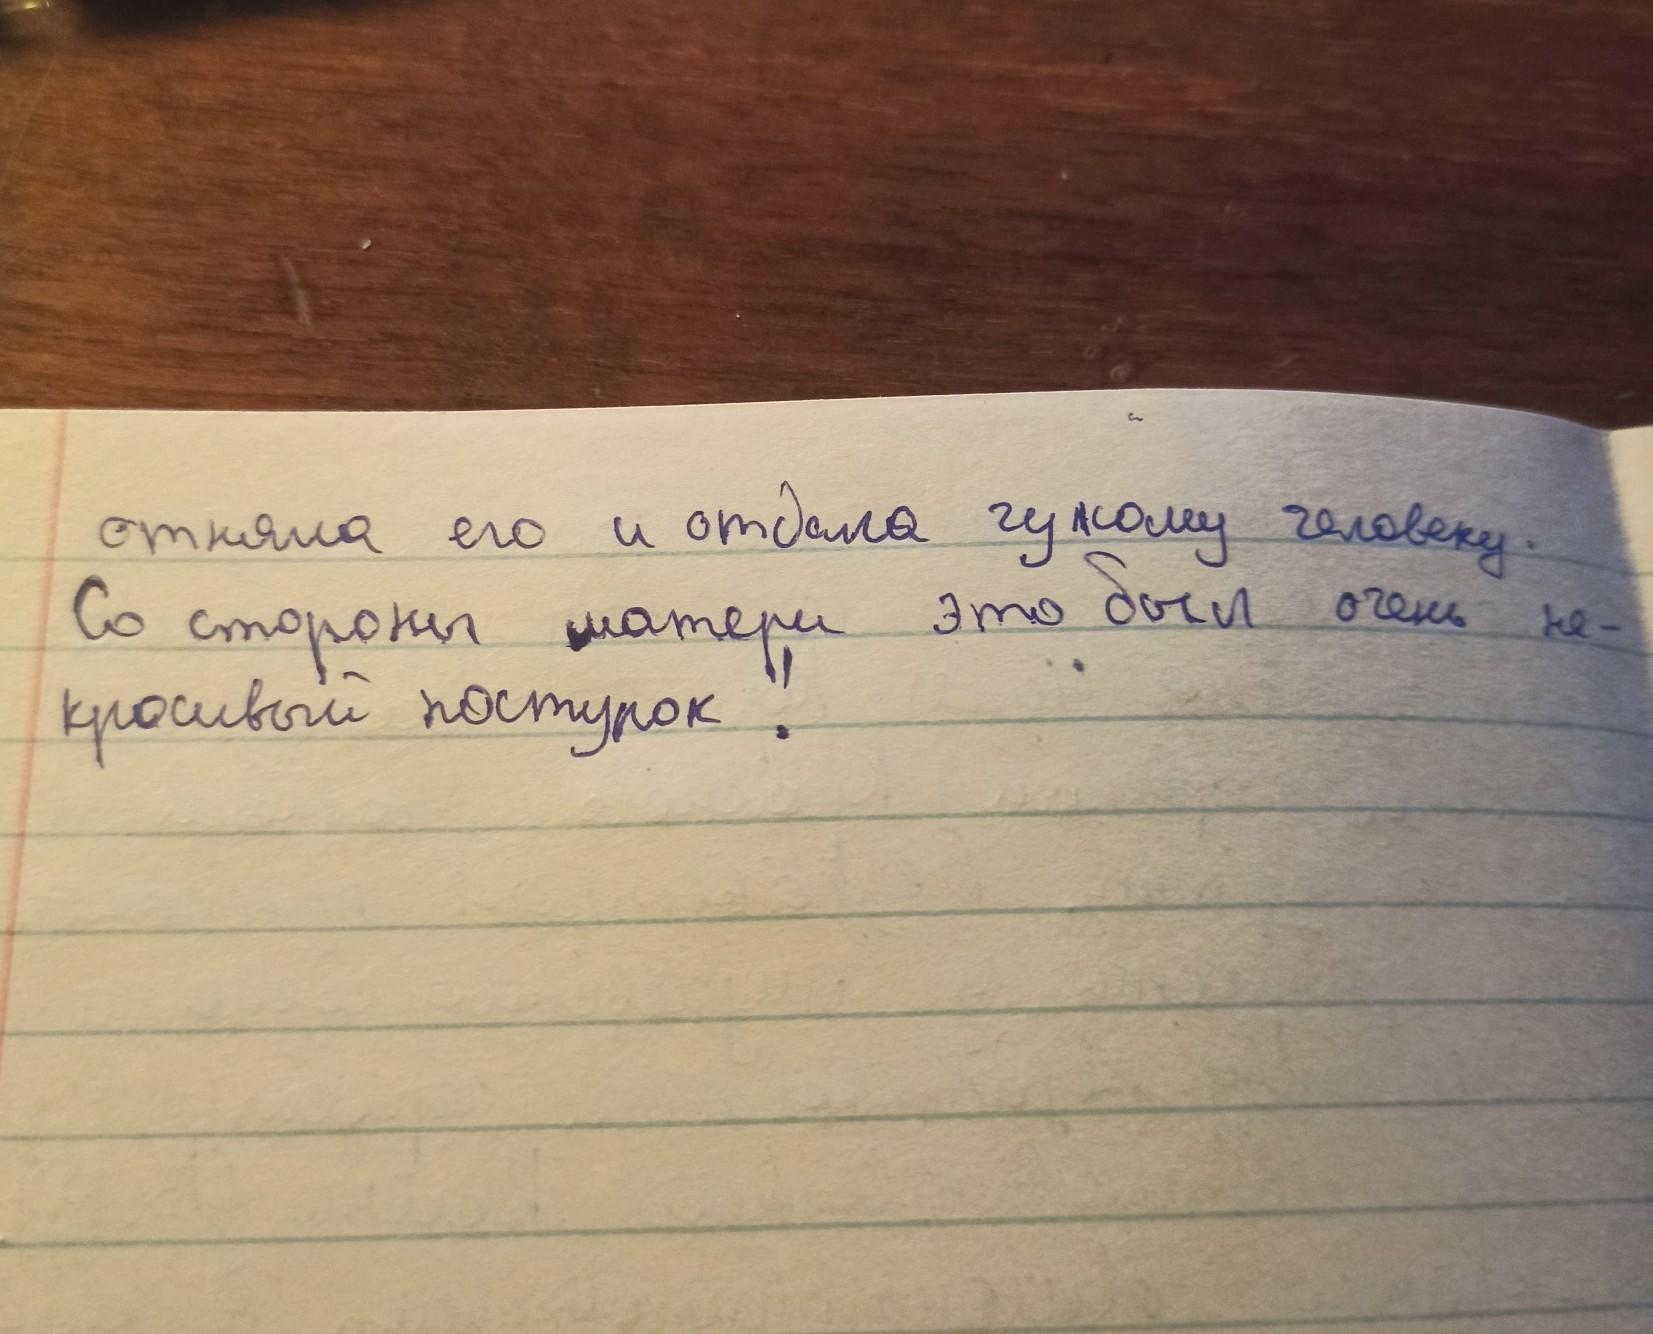 отняла его и отдала чужому человеку.
Со стороны матери это был очень не-
красивый поступок!